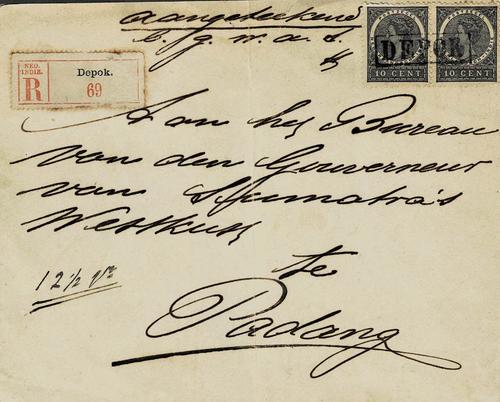 Aangeteekend
NED.
INDIË.
R
Depok.
69
DEPOK
10 CENT
10 CENT
Aan het Bureau
van den Gouverneur
van Sumatra's
Westkust
te
Padang
12½ gr